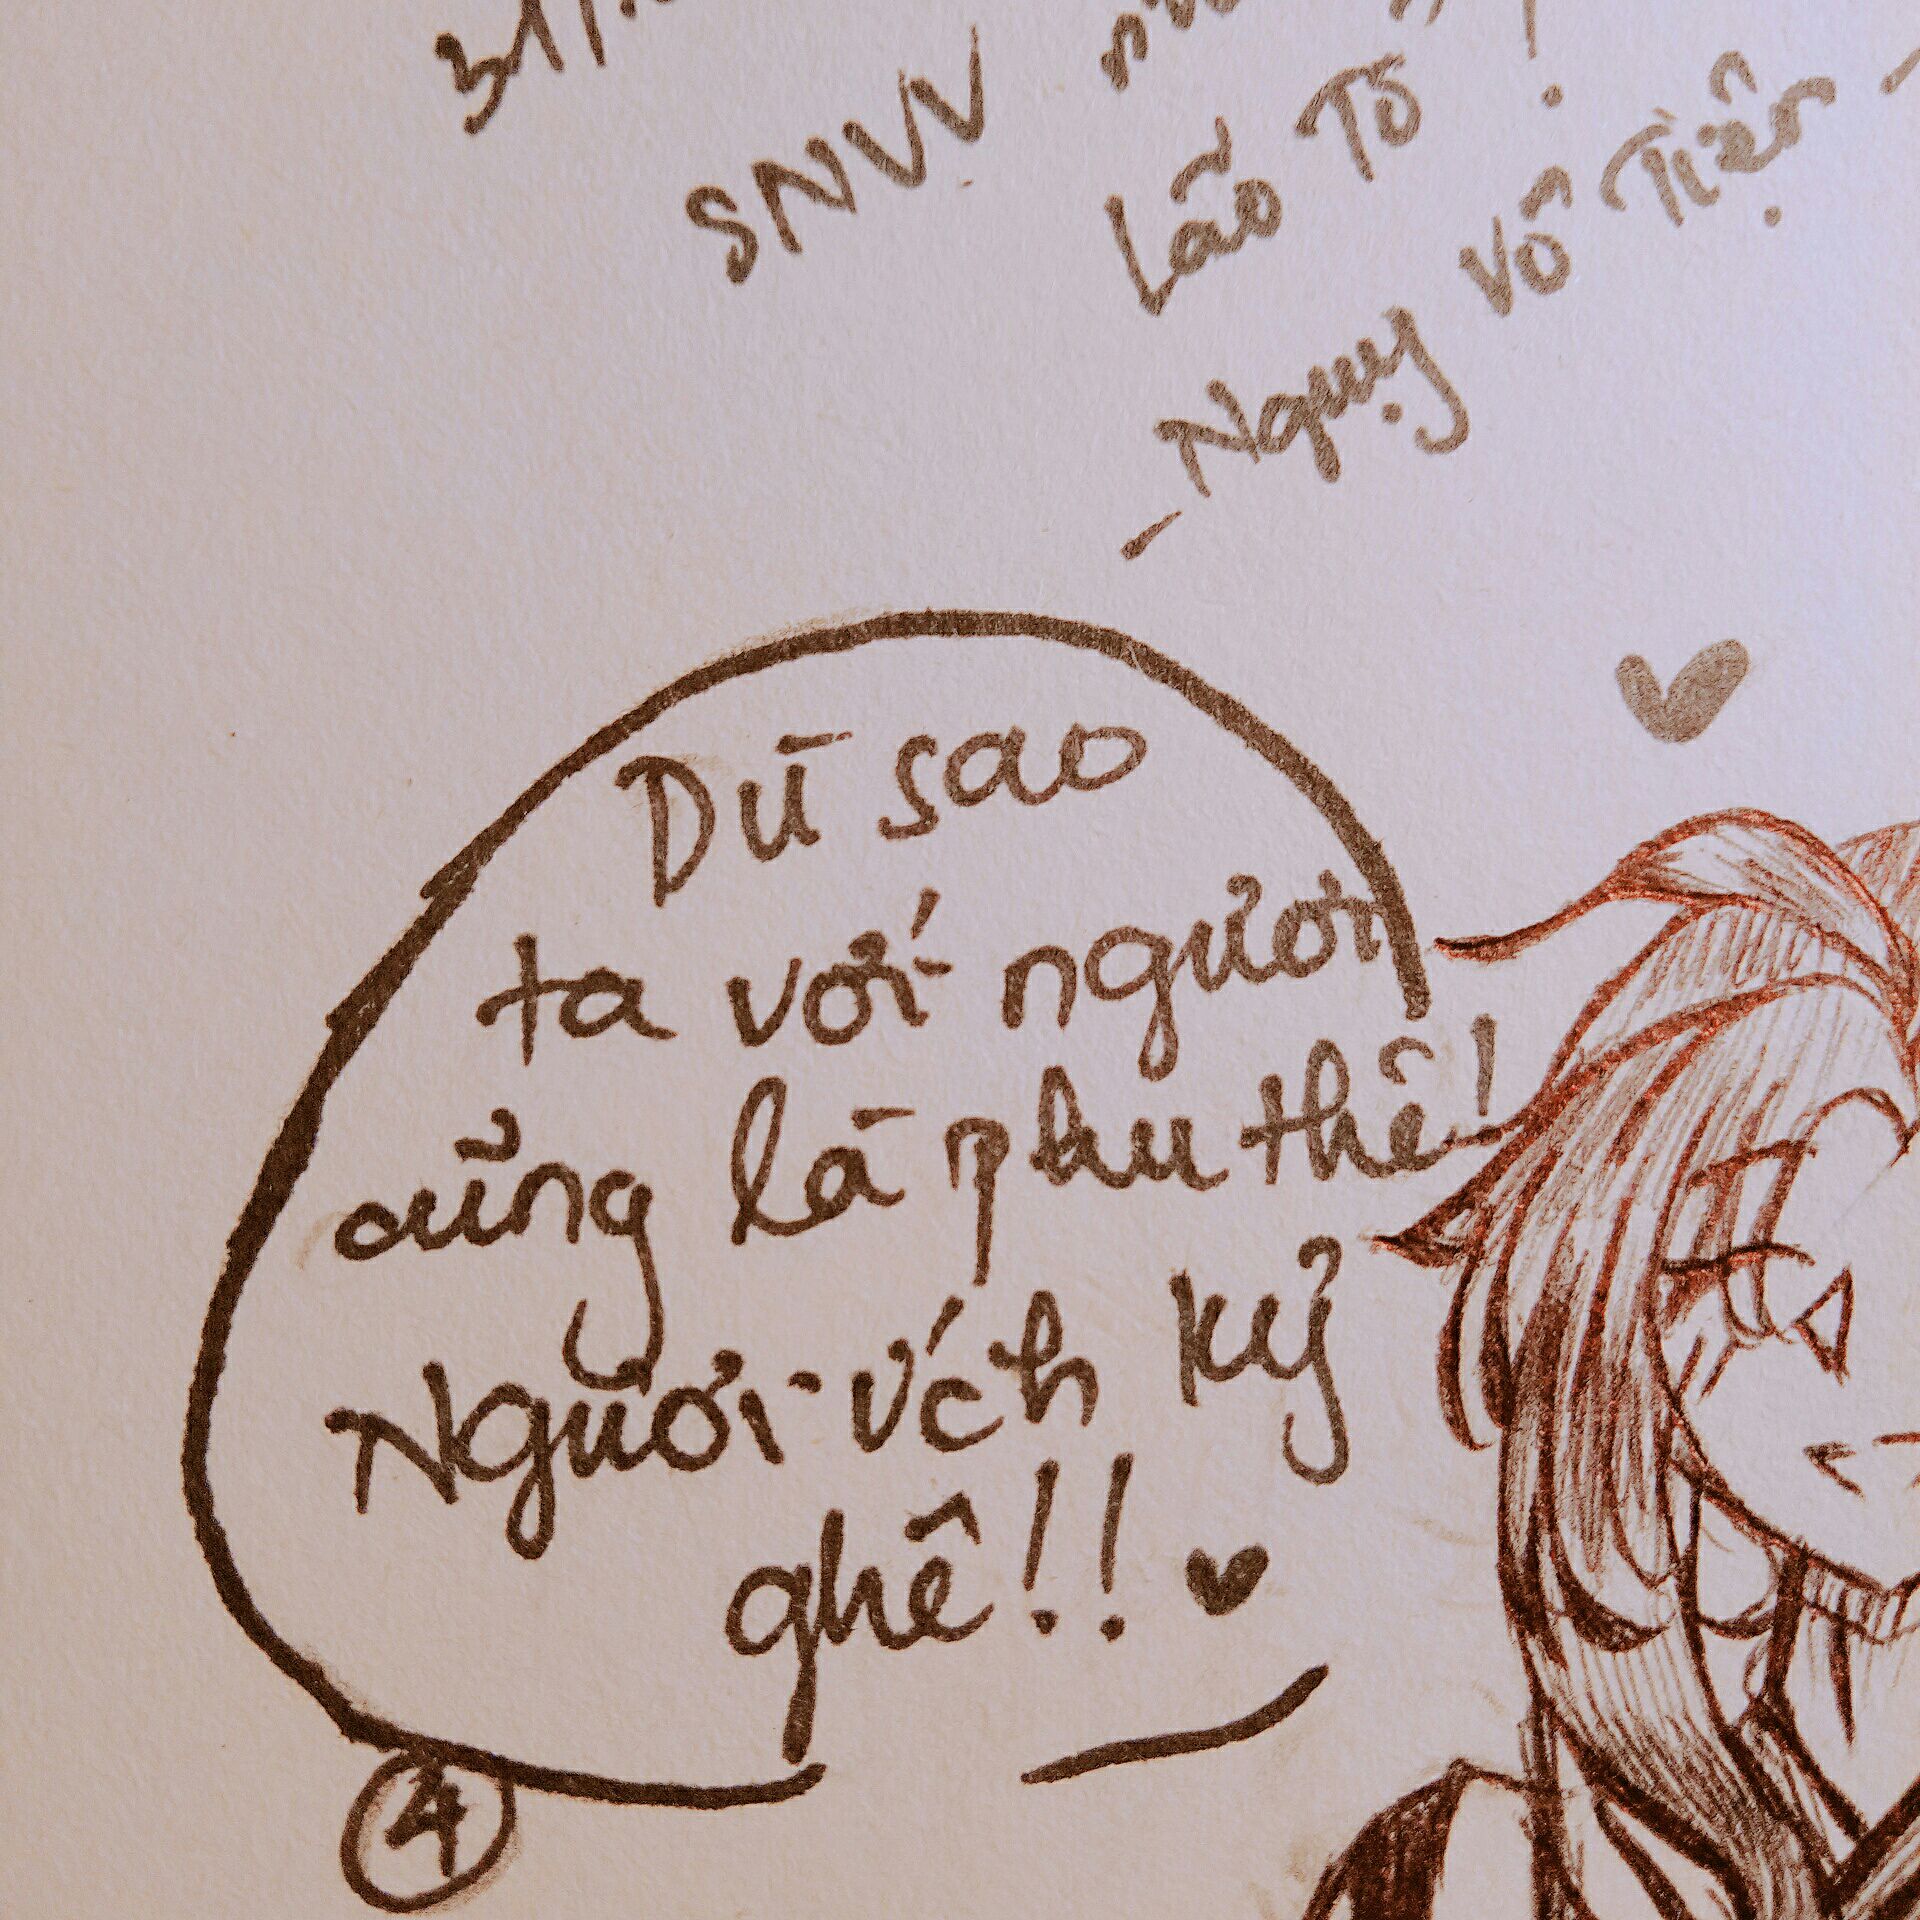 SNVV
Lão Tổ
- Ngụy Vô Tiện -
Dù sao
ta với ngươi
cũng là phu thê!
Ngươi ích kỷ
ghê!!
4